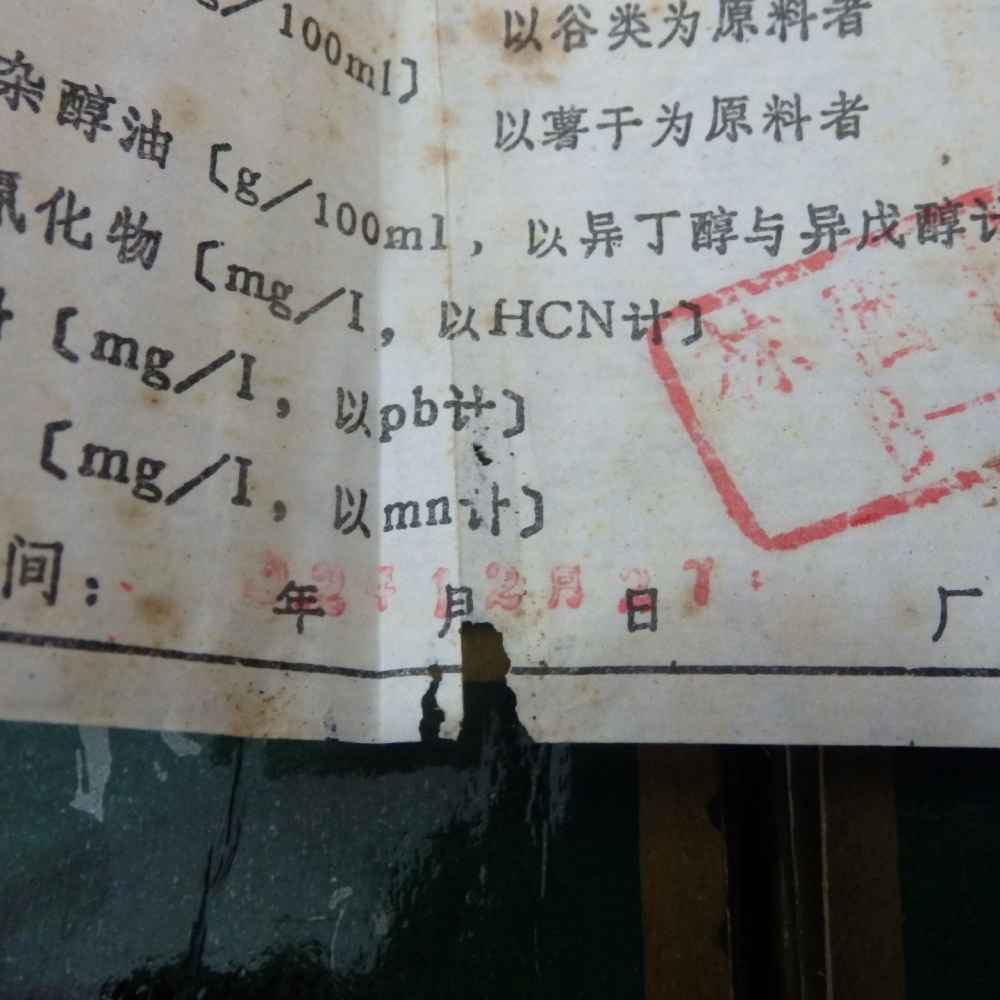 g/100ml〕
以谷类为原料者
以薯干为原料者
杂醇油〔g/100ml, 以异丁醇与异戊醇计
氰化物〔mg/I, 以HCN计〕
计〔mg/I, 以pb计〕
〔mg/I, 以mn计〕
间: 年 月 日 厂